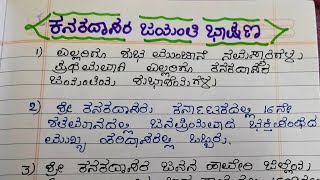 ಕನಕದಾಸರ ಜಯಂತಿ ಭಾಷಣ
1) ಎಲ್ಲರಿಗೂ ಶುಭ ಮುಂಜಾನೆ ನಮಸ್ಕಾರಗಳು,
ಪ್ರಥಮವಾಗಿ ಎಲ್ಲರಿಗೂ ಕನಕದಾಸರ
ಜಯಂತಿಯ ಶುಭಾಶಯಗಳು.
2) ಶ್ರೀ ಕನಕದಾಸರು ಕರ್ನಾಟಕದಲ್ಲಿ 16ನೇ
ಶತಮಾನದಲ್ಲಿ ಜನಪ್ರಿಯವಾದ ಭಕ್ತಿಪಂಥದ
ಮುಖ್ಯ ಹರಿದಾಸರಲ್ಲಿ ಒಬ್ಬರು.
3) ಶ್ರೀ ಕನಕದಾಸರ ಜನನ ಹಾವೇರಿ ಜಿಲ್ಲೆಯ